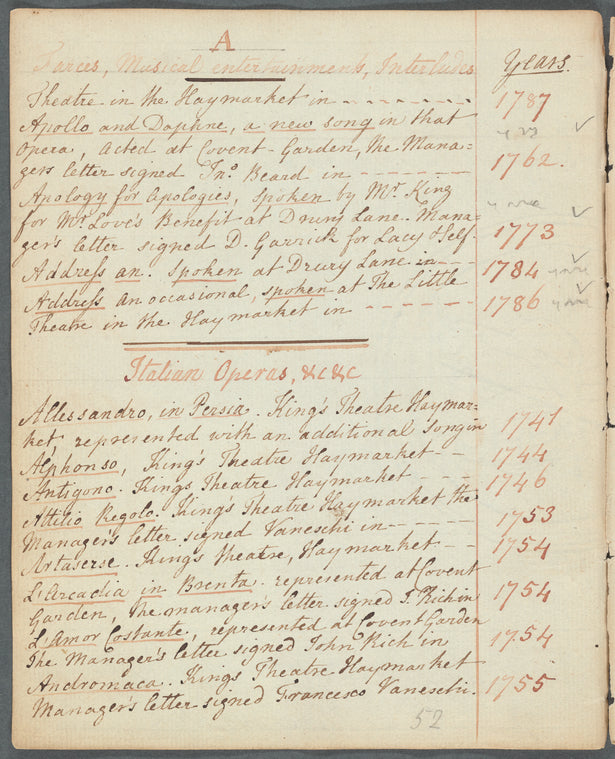 A
Farces, Musical entertainments, Interludes
Years.
Theatre in the Haymarket in - - - - - - 1787
Apollo and Daphne, a new song in that
Opera, acted at Covent-Garden, the Mana=
gers letter signed Jno. Beard in - - - - - - 1762.
Apology for Apologies, spoken by Mr. King
for Mr. Love's Benefit at Drury Lane. Mana=
ger's letter signed D. Garrick for Lacy & Self. 1773
Address an. spoken at Drury Lane in - - - 1784
Address an occasional, spoken at The Little
Theatre in the Haymarket in - - - - - - 1786
Italian Operas, &c &c
Allessandro, in Persia. King's Theatre Haymar=
ket, represented with an additional Song in 1741
Alphonso, King's Theatre Haymarket - - 1744
Antigono. Kings Theatre Haymarket - - - 1746
Attilio Regolo. King's Theatre Haymarket the
Manager's letter signed Vaneschi in - - - - - 1753
Artaserse. King's Theatre, Haymarket - - - 1754
L'Arcadia in Brenta. represented at Covent
Garden, the manager's letter signed J. Rich in 1754
L'Amor Costante, represented at Covent Garden
The Manager's letter signed John Rich in 1754
Andromaca. Kings Theatre Haymarket
Manager's letter signed Francesco Vaneschi. 1755
52